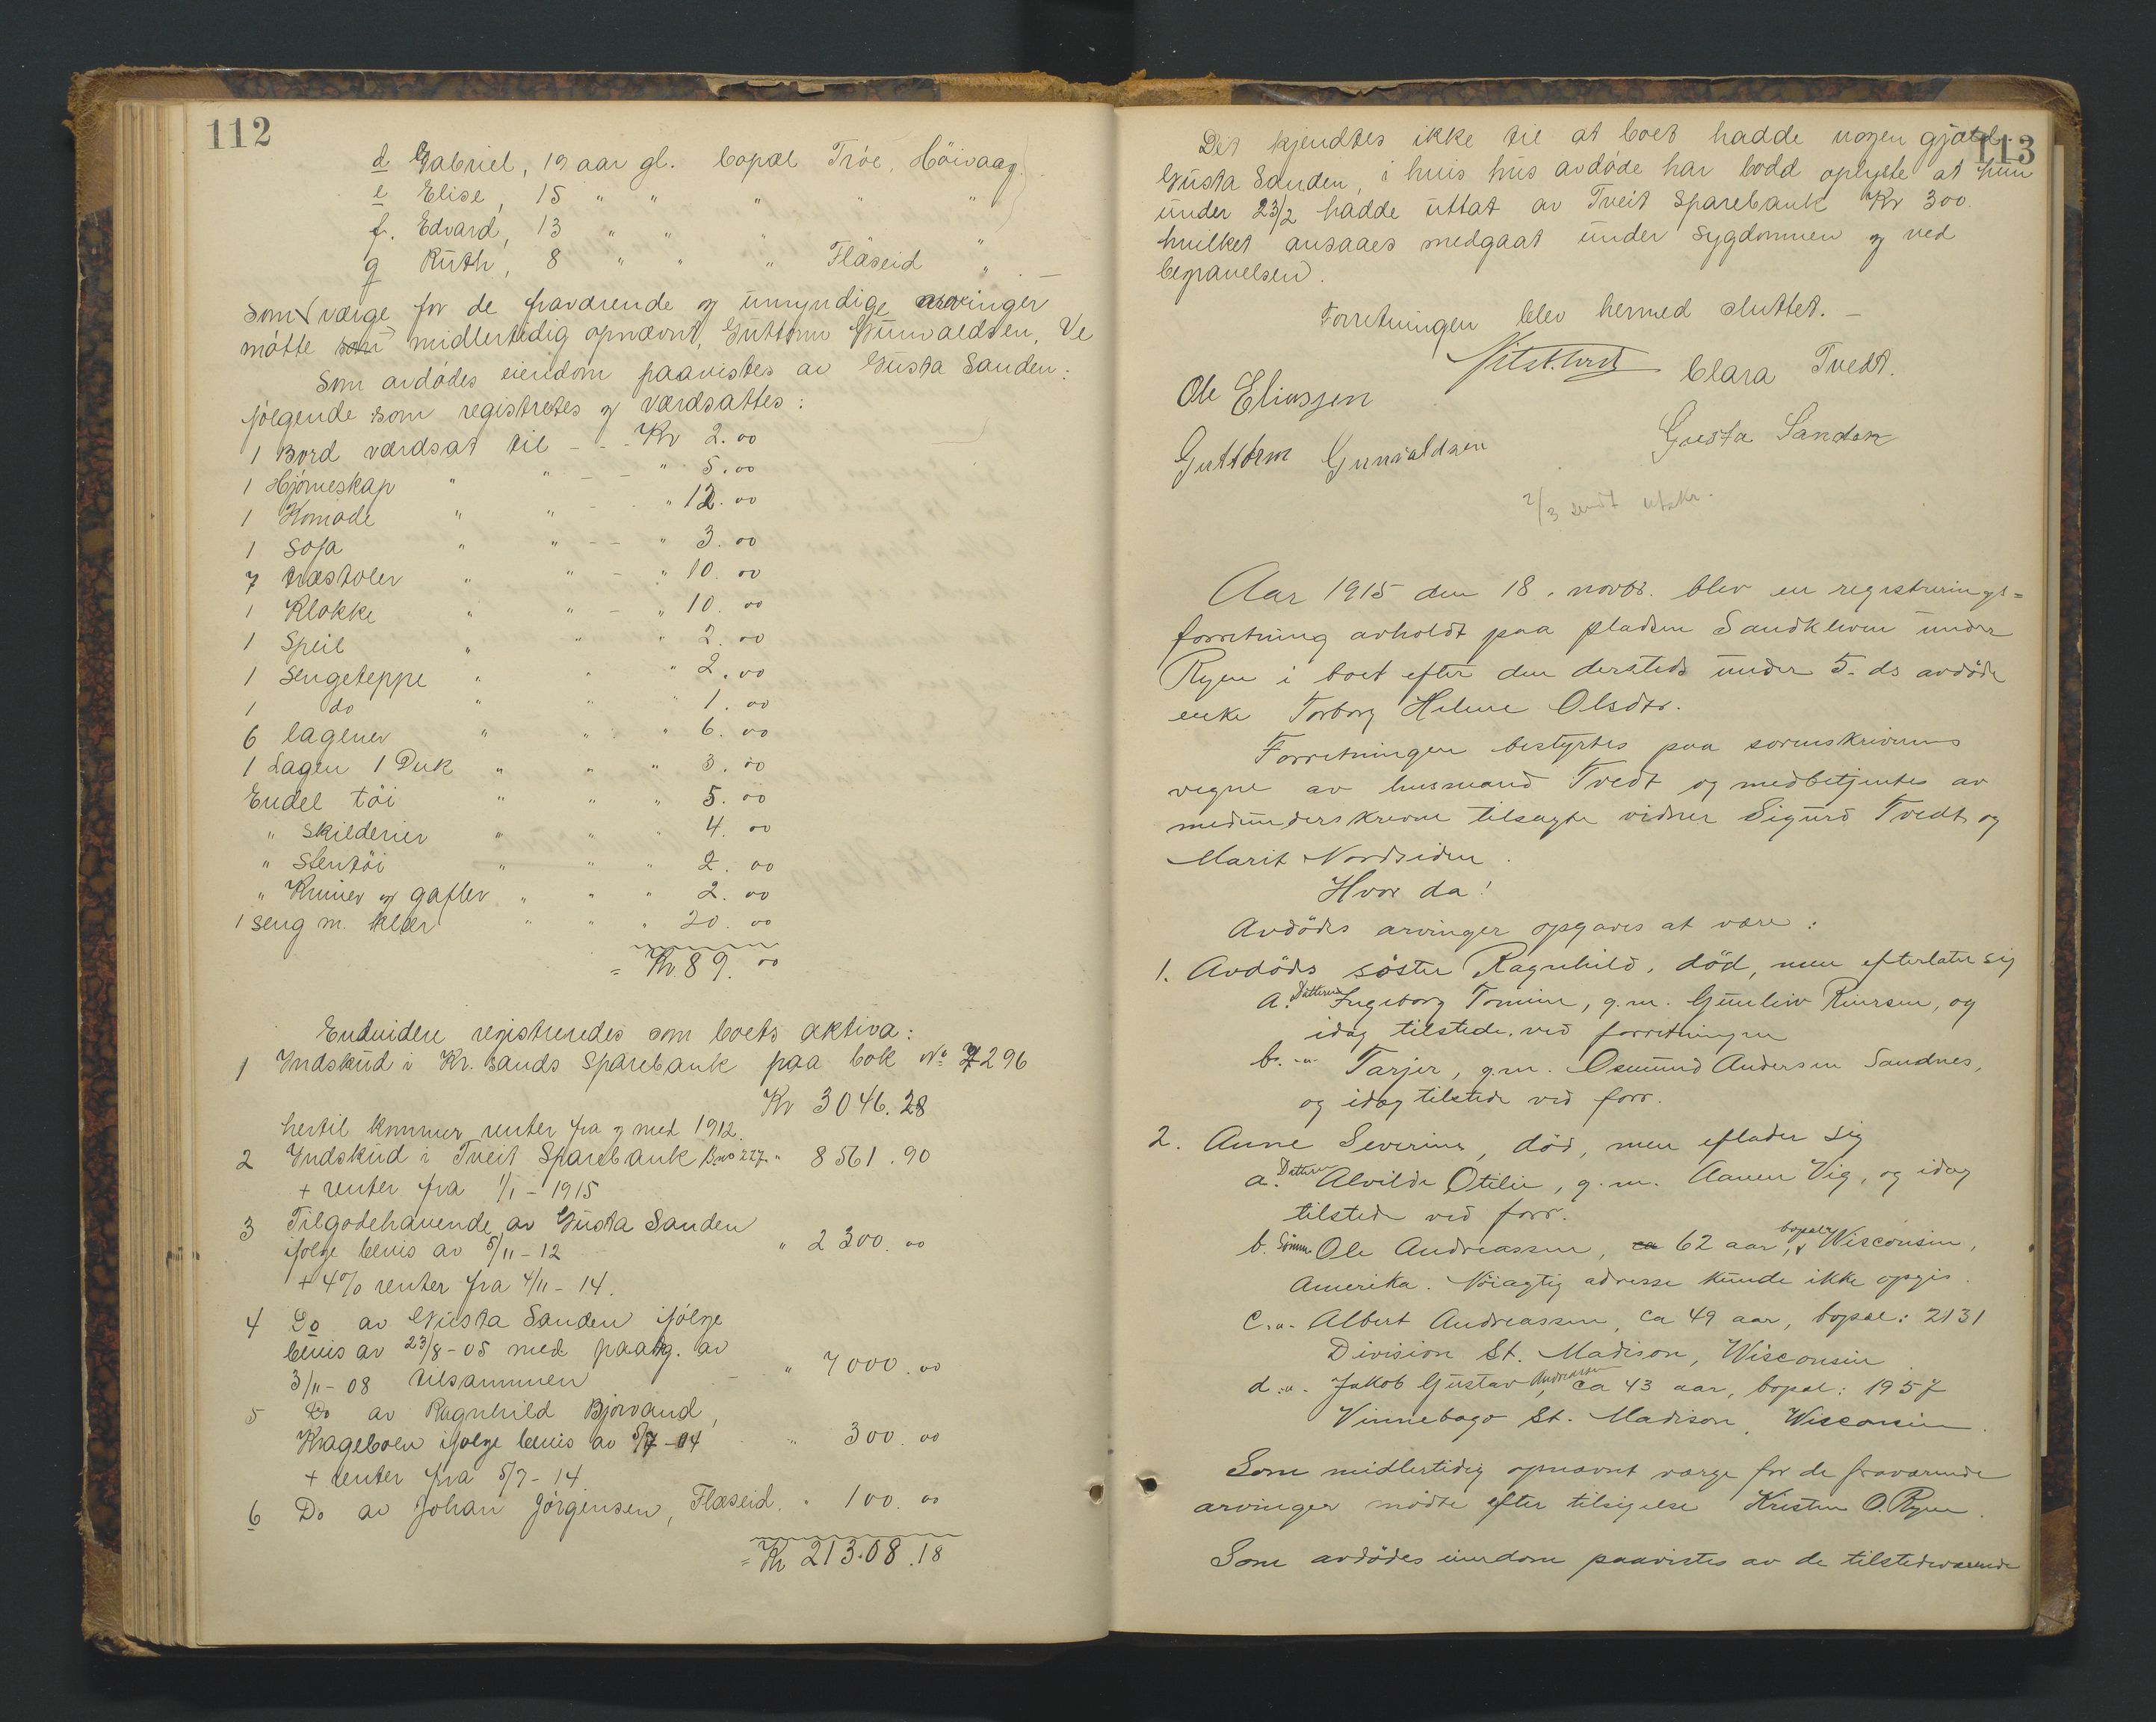 112
d Gabriel, 19 aar gl. bopæl Tróe, Höivaag.
e Elise, 15 " " " " "
f. Edvard, 13 " " " "
g Ruth, 8 " " " Flåseid " . —
Som værge for de fraværende og umyndige arvinger
måtte som midlertidig opnævnt, Guttorm Gunvaldsen, Ve
Som avdódes eiendom paavistes av Gusta Sanden:
fólgende som registretes og værdsattes:
1 Bord værdsat til - - - Kr 2.00
1 Hjórneskap " " - - " 5.00
1 Komode " " - " 12.00
1 Sofa " " - - " 3.00
7 træstoler " " - " 10.00
1 Klokke " " - " 10.00
1 Speil " " " 2.00
1 Sengeteppe " " " 2.00
1 do " " " 1.00
6 lagener " " " 6.00
1 Lagen 1 Duk " " " 3.00
Endel töi " " " 5.00
" Skilderier " " " 4.00
" Stentöi " " " 2.00
" Kniver og gafler " " " 2.00
1 seng m. klær " " " 20.00
= Kr. 89.00
Endvidere registreredes som boets aktiva:
1 Indskud i Kr.sands Sparebank paa bok No 7296
Kr 3046.28
hertil kommer renter fra og med 1912.
2 Indskud i Tveit Sparebank B.no 227 " 8561.90
+ renter fra 1/1 - 1915
3 Tilgodehavende av Gusta Sanden
ifólge bevis av 5/11 - 12 " 2300.00
+ 4% renter fra 4/11 - 14.
4 Do av Gusta Sanden ifólge
bevis av 23/8 - 05 med paateg. av
3/11 - 08 tilsammen - " 7000.00
5 Do av Ragnhild Bjorvand,
Krageboen ifólge bevis av 5/7 - 04 " 300.00
+ renter fra 5/7 - 14
6 Do av Johan Jórgensen, Flæseid. " 100.00
= Kr 21308.18
113
Det kjendtes ikke til at boet hadde nogen gjæld.
Gusta Sanden, i hvis hus avdóde har bodd oplyste at hun
under 23/2 hadde uttat av Tveit Sparebank Kr 300.
hvilket ansaaes medgaat under sygdommen og ved
begravelsen.
Forretningen blev hermed sluttet. —
Clara Tvedt.
Ole Eliassen
Gusta Sanden
Guttorm Gunvaldsen
2/3 sendt utskr.
Aar 1915 den 18. novbr. blev en registrerings=
forretning avholdt paa pladsen Sandkleven under
Ryen i boet efter den dersteds under 5. ds avdöde
enke Torborg Helene Olsdtr.
Forretningen bestyrtes paa sorenskriverens
vegne av lensmand Tvedt og medbetjentes av
medunderskrevne tilsagte vidner Sigurd Tvedt og
Marit Nordsiden.
Hvor da!
Avdödes arvinger opgaves at være:
1. Avdöds söster Ragnhild, död, men efterlater sig
a. Datteren Ingeborg Tomine, g.m. Gunleiv Reiersen, og
idag tilstede ved forretningen
b. -"- Tarjer, g.m. Osmund Andersen Sandnes,
og idag tilstede ved forr.
2. Anne Severine, död, men eflader sig
a. Datteren Alvilde Otilie, g.m. Aanen Vig, og idag
tilstede ved forr.
b. Sönnen Ole Andreassen, ca 62 aar, bopæl Wisconsin,
Amerika. Nöiagtig adresse kunde ikke opgis.
c. -"- Albert Andreassen, ca 49 aar, bopæl: 2131
Division St. Madison, Wisconsin.
d. -"- Jakob Gustav Andreassen, ca 43 aar, bopæl: 1957
Vinnebago St. Madison, Wisconsin.
Som midlertidig opnævnt værge for de fraværende
arvinger mödte efter tilsigelse Kristen O. Ryen.
Som avdödes eiendom paavistes av de tilstedeværende